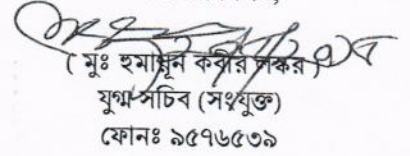 ( মুঃ হুমায়ূন কবীর লস্কর )
যুগ্ম-সচিব (সংযুক্ত)
ফোনঃ ৯৫৭৬৫৩৯